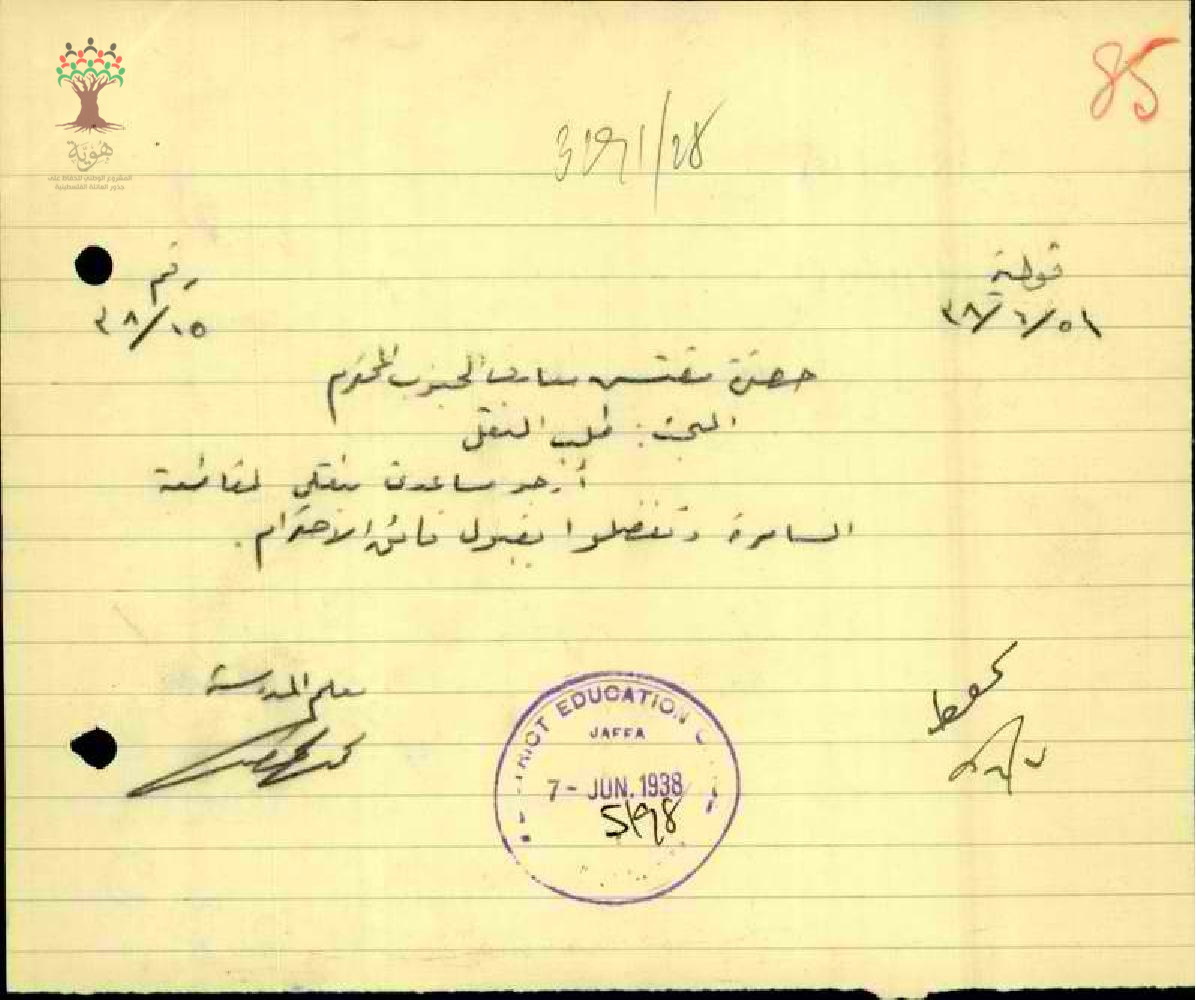 85
3191/28
هوية
المشروع الوطني للحفاظ على
جذور العائلة الفلسطينية
قولية
رقم
٣٨/١٥
حضرة مفتش معارف الجنوب المحترم
البحث: طلب النقل
أرجو مساعدتي بنقلي لمقاطعة
السامرة وتفضلوا بقبول فائق الاحترام.
معلم المدرسة
DISTRICT EDUCATION
JAFFA
7 - JUN. 1938
5198
تحفظ